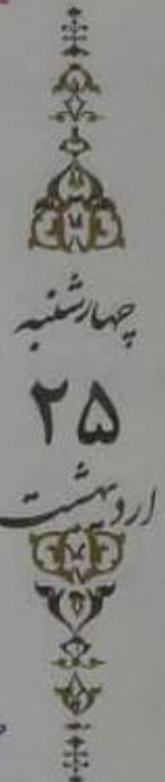 چهارشنبه
۲۵
اردیبهشت